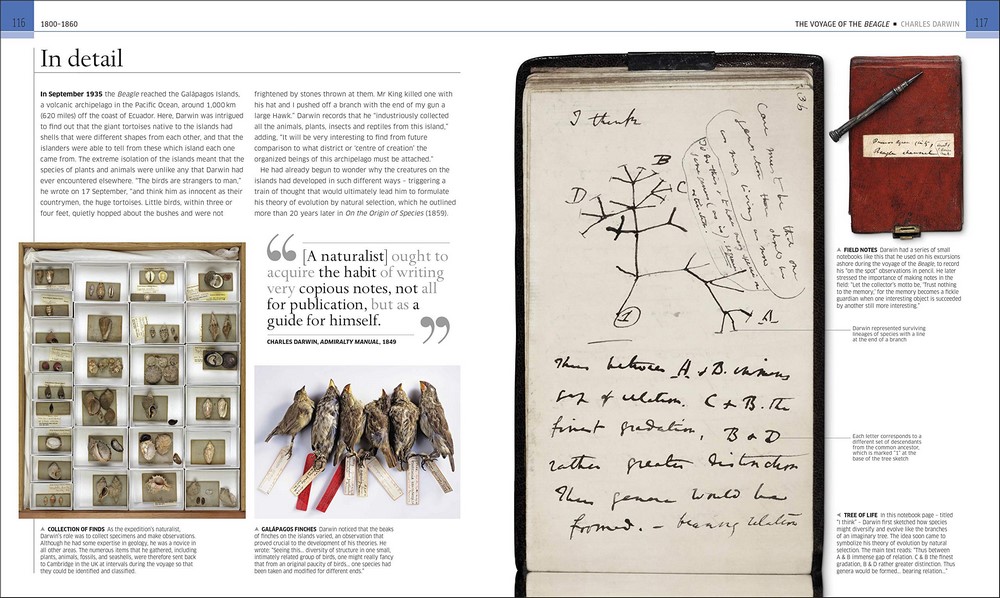 116
1800–1860
THE VOYAGE OF THE BEAGLE ■ CHARLES DARWIN
117
In detail
In September 1935 the Beagle reached the Galápagos Islands,
a volcanic archipelago in the Pacific Ocean, around 1,000 km
(620 miles) off the coast of Ecuador. Here, Darwin was intrigued
to find out that the giant tortoises native to the islands had
shells that were different shapes from each other, and that the
islanders were able to tell from these which island each one
came from. The extreme isolation of the islands meant that the
species of plants and animals were unlike any that Darwin had
ever encountered elsewhere. "The birds are strangers to man,"
he wrote on 17 September, "and think him as innocent as their
countrymen, the huge tortoises. Little birds, within three or
four feet, quietly hopped about the bushes and were not
frightened by stones thrown at them. Mr King killed one with
his hat and I pushed off a branch with the end of my gun a
large Hawk." Darwin records that he "industriously collected
all the animals, plants, insects and reptiles from this island,"
adding, "It will be very interesting to find from future
comparison to what district or 'centre of creation' the
organized beings of this archipelago must be attached."
He had already begun to wonder why the creatures on the
islands had developed in such different ways – triggering a
train of thought that would ultimately lead him to formulate
his theory of evolution by natural selection, which he outlined
more than 20 years later in On the Origin of Species (1859).
“[A naturalist] ought to
acquire the habit of writing
very copious notes, not all
for publication, but as a
guide for himself.”
CHARLES DARWIN, ADMIRALTY MANUAL, 1849
COLLECTION OF FINDS As the expedition's naturalist,
Darwin's role was to collect specimens and make observations.
Although he had some expertise in geology, he was a novice in
all other areas. The numerous items that he gathered, including
plants, animals, fossils, and seashells, were therefore sent back
to Cambridge in the UK at intervals during the voyage so that
they could be identified and classified.
GALÁPAGOS FINCHES Darwin noticed that the beaks
of finches on the islands varied, an observation that
proved crucial to the development of his theories. He
wrote: "Seeing this... diversity of structure in one small,
intimately related group of birds, one might really fancy
that from an original paucity of birds... one species had
been taken and modified for different ends."
36
I think
Case must be that one
generation then should be
as many living as now
B
C
D
A
1
Thus between A & B. immens
gap of relation. C & B. the
finest gradation, B & D
rather greater distinction
Thus genera would be
formed. – bearing relation
FIELD NOTES Darwin had a series of small
notebooks like this that he used on his excursions
ashore during the voyage of the Beagle, to record
his "on the spot" observations in pencil. He later
stressed the importance of making notes in the
field: "Let the collector's motto be, 'Trust nothing
to the memory,' for the memory becomes a fickle
guardian when one interesting object is succeeded
by another still more interesting."
Darwin represented surviving
lineages of species with a line
at the end of a branch
Each letter corresponds to a
different set of descendants
from the common ancestor,
which is marked "1" at the
base of the tree sketch
TREE OF LIFE In this notebook page – titled
"I think" – Darwin first sketched how species might
diversify and evolve like the branches
of an imaginary tree. The idea soon came to
symbolize his theory of evolution by natural
selection. The main text reads: "Thus between
A & B immense gap of relation. C & B the finest
gradation, B & D rather greater distinction. Thus
genera would be formed... bearing relation..."